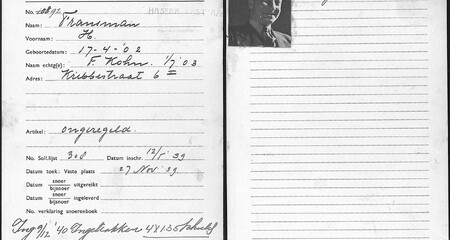 No. 10892
Naam: Fransman
Voornaam: H.
Geboortedatum: 17-4-'02
Naam echtg(e): F. Kohn. 1/7 03
Adres: Kribbestraat 6
Artikel: ongeregeld.
No. Soll.lijst 308 Datum inschr. 12/5 39
Datum toek: Vaste plaats 27 Nov 39
Datum snoer bijsnoer uitgereikt
Datum snoer bijsnoer ingeleverd
No. verklaring snoerenboek
Ing 9/12 '40 Ingetrokken